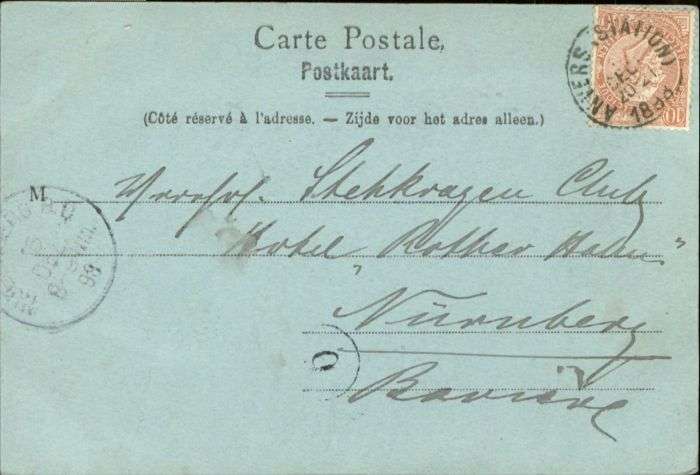 Carte Postale,
Postkaart.
(Côté réservé à l'adresse. — Zijde voor het adres alleen.)
ANVERS (STATION)
1898
10
M
Stehkragen Club
Hotel „Rother Hahn"
Nürnberg
Bavière
98
O